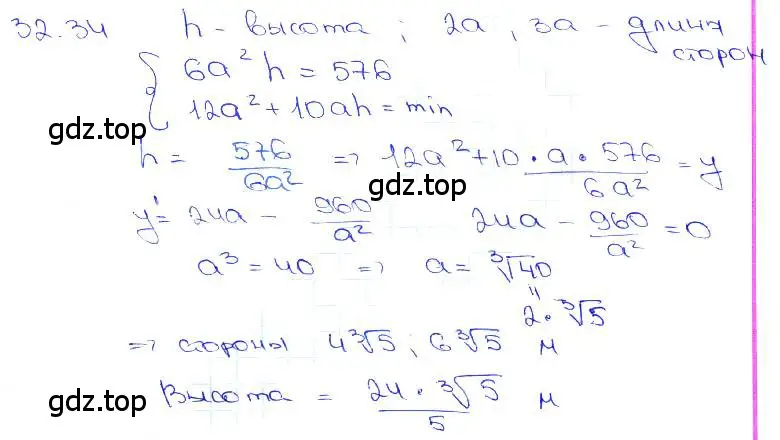 32.34 h - высота ; 2a , 3a - длина сторон
{ 6a² h = 576
12a² + 10ah = min
gdz.top
h = 576/6a² => 12a² + 10 · a · 576/6a² = y
gdz.top
y' = 24a - 960/a² 24a - 960/a² = 0
a³ = 40 => a = ∛40
"
2 · ∛5
=> стороны 4∛5 ; 6∛5 м
Высота = 24 · ∛5/5 м
gdz.top
gdz.top